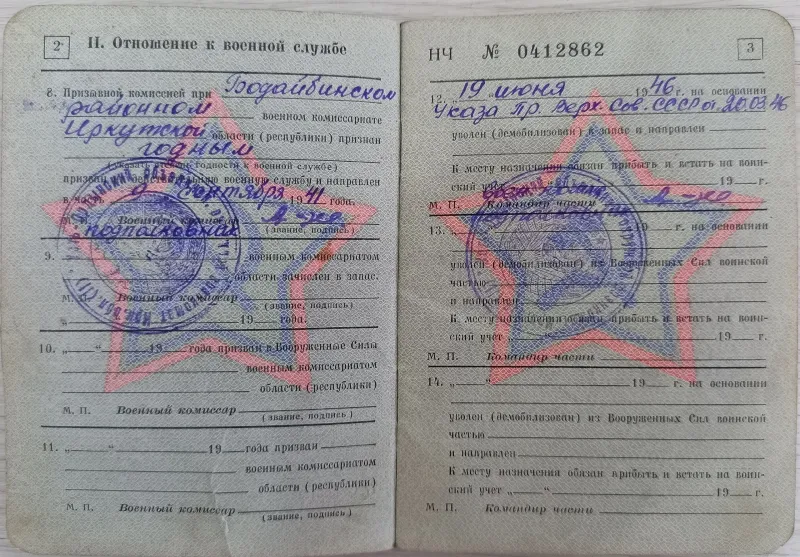 2
II. Отношение к военной службе
8. Призывной комиссией при Бодайбинском
районном военном комиссариате
Иркутской области (республики) признан
годным
(указать степень годности к военной службе)
призван на действительную военную службу и направлен
в часть сентября 1941 года.
М. П. Военный комиссар
подполковник (звание, подпись)
9. военным комиссариатом
области зачислен в запас.
М. П. Военный комиссар
(звание, подпись)
„ “ 19 года.
10. „ “ 19 года призван в Вооруженные Силы
военным комиссариатом
области (республики)
М. П. Военный комиссар
(звание, подпись)
11. „ “ 19 года призван
военным комиссариатом
области (республики)
М. П. Военный комиссар
(звание, подпись)
НЧ № 0412862
3
12. „19 июня 1946 г. на основании
Указа Пр. Верх. Сов. СССР от 20.03.46
уволен (демобилизован) в запас и направлен
К месту назначения обязан прибыть и встать на воин-
ский учет 19 г.
М. П. Командир части
подполковник
13. 19 г. на основании
уволен (демобилизован) из Вооруженных Сил воинской
частью
и направлен
К месту назначения обязан прибыть и встать на воин-
ский учет „ “ 19 г.
М. П. Командир части
14. „ “ 19 г. на основании
уволен (демобилизован) из Вооруженных Сил воинской
частью
и направлен
К месту назначения обязан прибыть и встать на воин-
ский учет „ “ 19 г.
М. П. Командир части